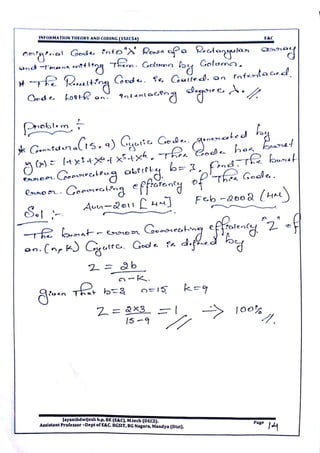 INFORMATION THEORY AND CODING (15EC54) E&C
original Code into "λ" Rows of a Rectangular array
and Transmitting Them Column by Column.
* The Resulting Code is Called an Interlaced
Code with an interlacing degree λ.
Problem :-
* Consider a (15, 9) Cyclic Code generated by
g(x) = 1+x³+x⁴+x⁵+x⁶. This Code has burst
error Correcting ability b=3. Find The burst
error Correcting efficiency of This Code.
Aug-2011 [4M] Feb-2002 (4M)
Sol :-
The burst-error Correcting efficiency "Z" of
an (n, k) Cyclic Code is defined by
Z = 2b
n-k
given That b=3 n=15 k=9
Z = 2×3 = 1 ⇒ 100%
15-9
Assistant Professor -Dept of E&C. BGSIT, BG Nagara, Mandya (Dist). Page 14